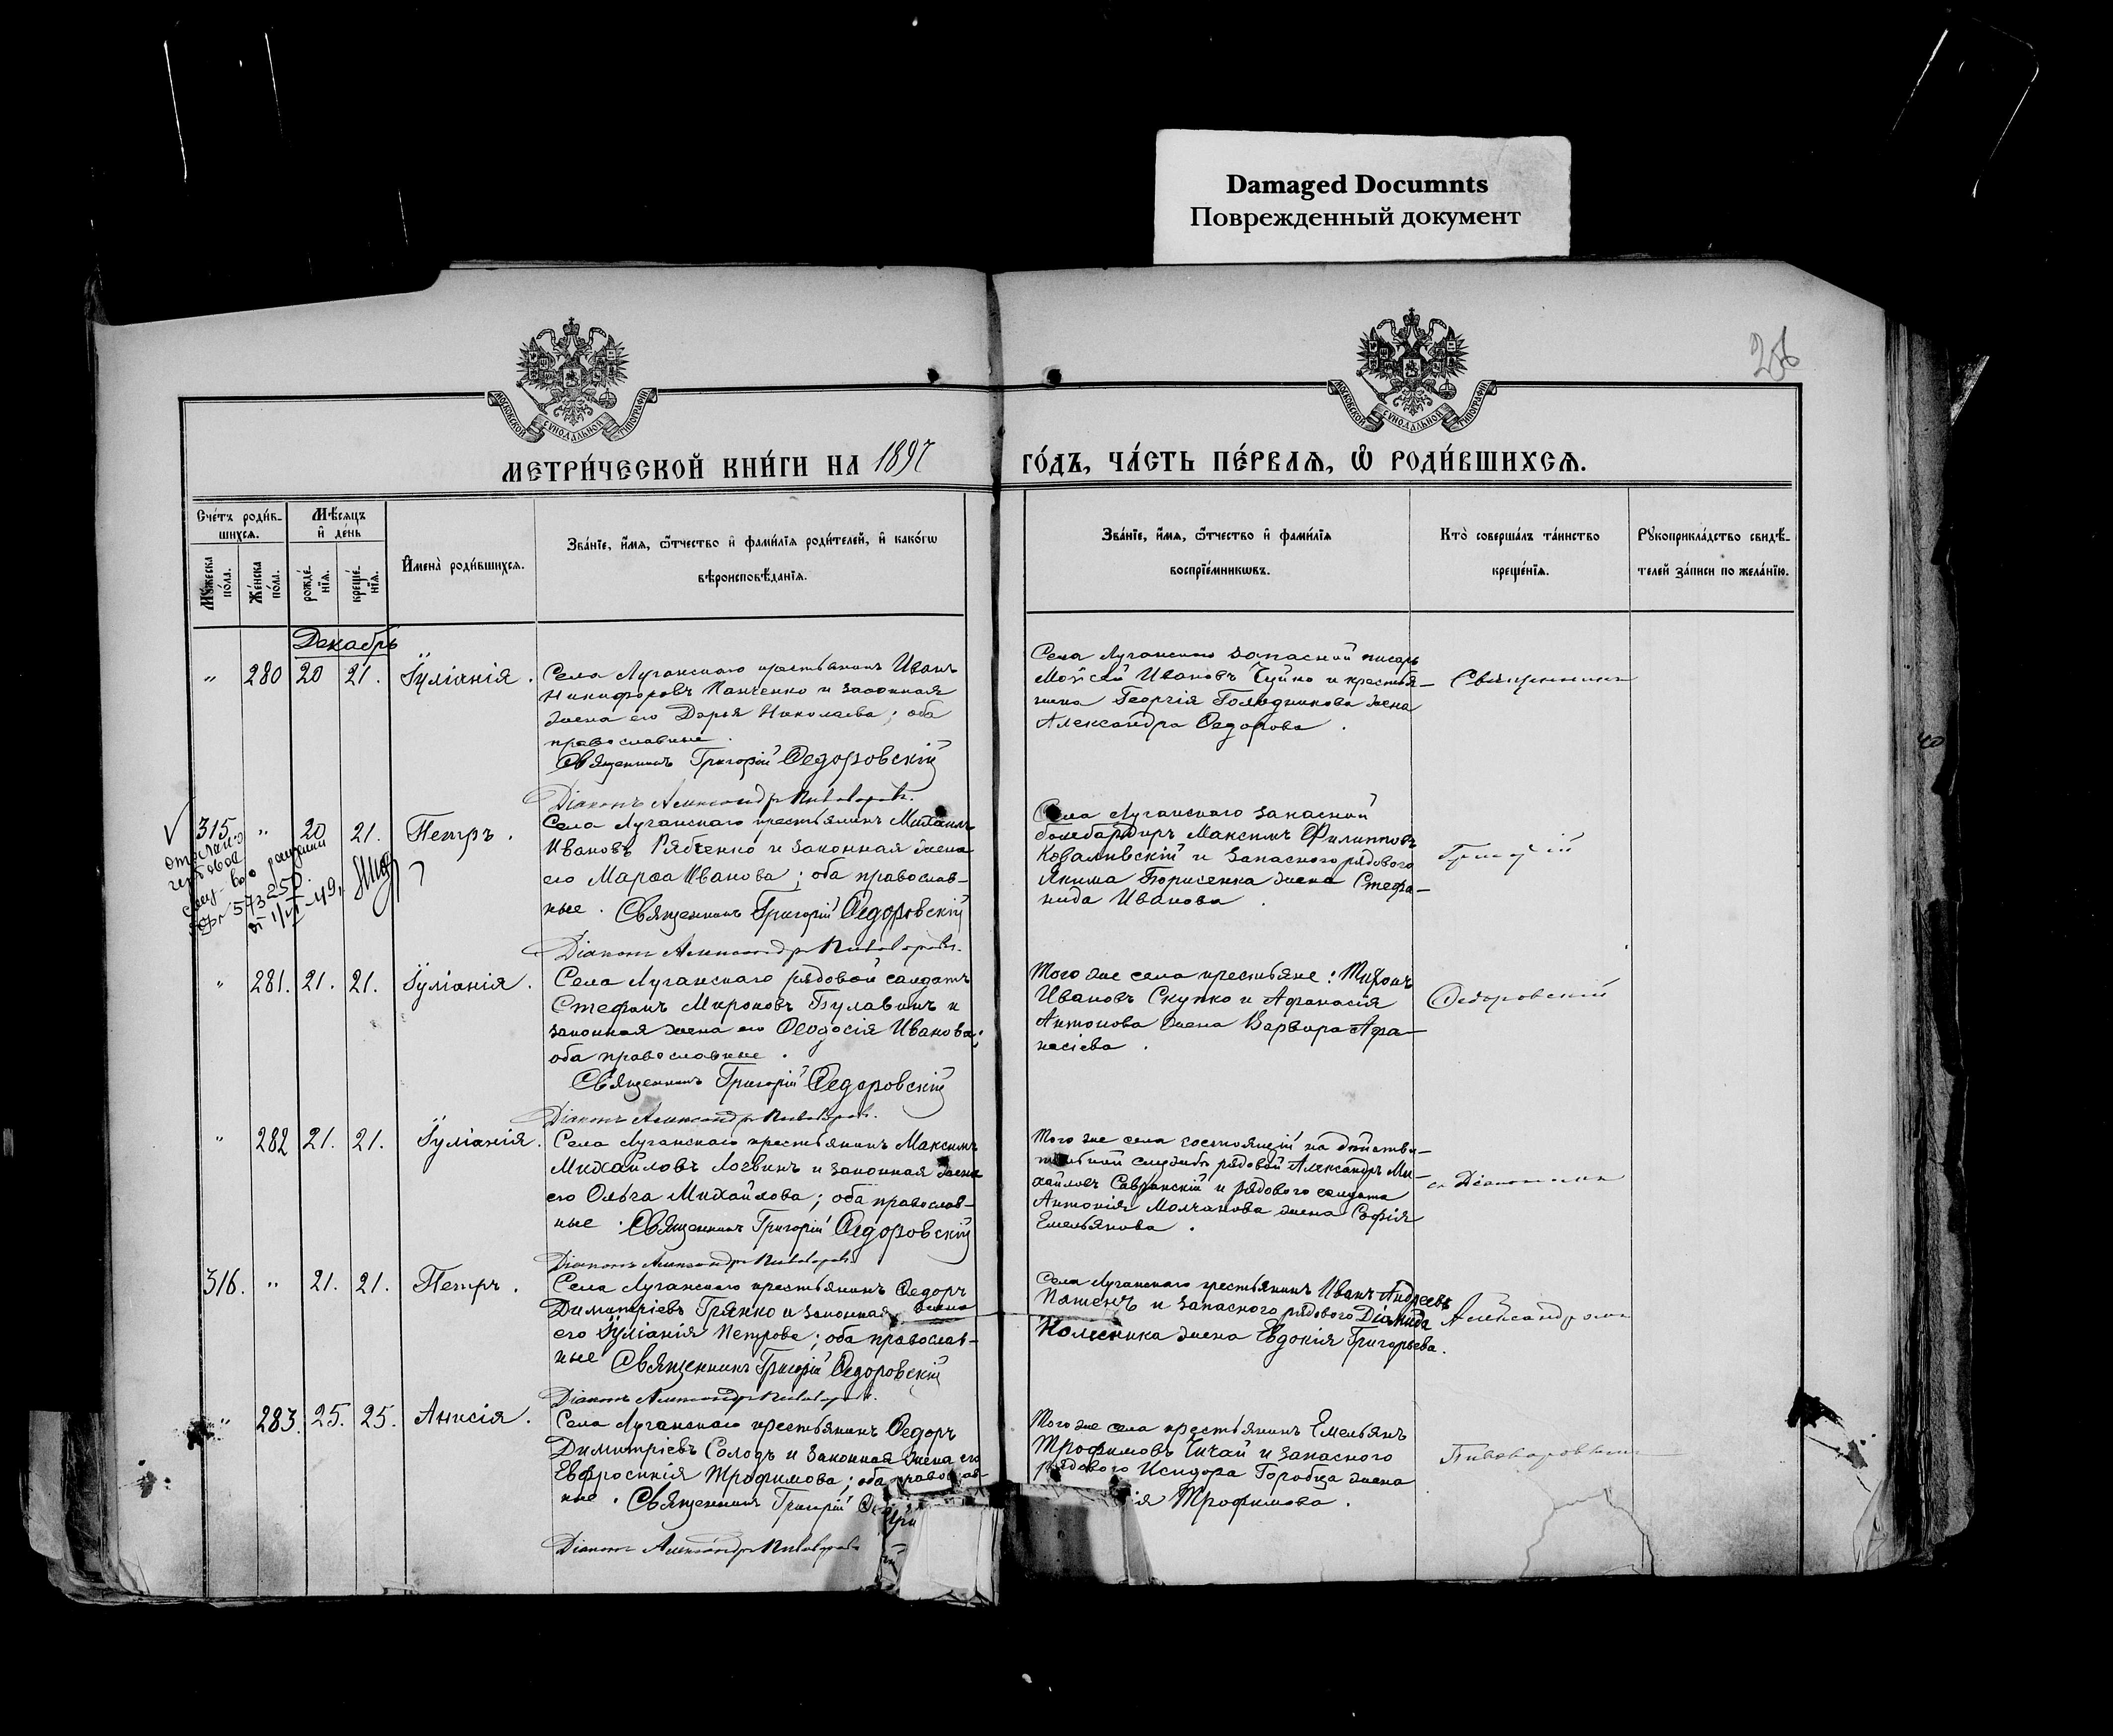 Damaged Documnts
Поврежденный документ
МОСКОВСКОЙ СУНОДАЛЬНОЙ ТИПОГРАФІИ
МОСКОВСКОЙ СУНОДАЛЬНОЙ ТИПОГРАФІИ
МЕТРИ́ЧЕСКОЙ КНИ́ГИ НА 1897 ГО́ДЪ, ЧА́СТЬ ПЕ́РВАѦ, Ѡ РОДИ́ВШИХСѦ.
Сче́тъ роди́в-
шихсѧ.
Мꙋ́жеска по́ла.
Же́нска по́ла.
Мѣ́сѧцъ
и҆ де́нь
рожде́-
нїѧ.
креще́-
нїѧ.
И҆мена̀ роди́вшихсѧ.
Зва́нїе, и҆́мѧ, ѻ҆́тчество и҆ фами́лїѧ роди́телей, и҆ како́гѡ
вѣроисповѣ́данїѧ.
Зва́нїе, и҆́мѧ, ѻ҆́тчество и҆ фами́лїѧ
воспрїе́мникѡвъ.
Кто̀ соверша́лъ та́инство
креще́нїѧ.
Рꙋкоприкла́дство свидѣ́-
телей за́писи по жела́нїю.
Декабрь
" 280 20 21. Іуліанія.
Села Луганскаго крестьянинъ Иванъ
Никифоровъ Панченко и законная
жена его Дарья Николаева; оба
православные.
Священникъ Григорій Ѳедоровскій
Діаконъ Александръ Пивоваровъ.
Села Луганскаго запасной писарь
Мойсей Ивановъ Чуйко и крестья-
нина Георгія Голодникова жена
Александра Ѳедорова.
Священникъ
315. " 20 21. Петръ.
573250
Села Луганскаго крестьянинъ Михаилъ
Ивановъ Рябченко и законная жена
его Марѳа Иванова; оба православ-
ные. Священникъ Григорій Ѳедоровскій
Діаконъ Александръ Пивоваровъ.
Села Луганскаго запасной
бомбардиръ Максимъ Филиповъ
Коваливскій и запасного рядового
Якима Борисенка жена Стефа-
нида Иванова.
Григорій
" 281. 21. 21. Іуліанія.
Села Луганскаго рядовой солдатъ
Стефанъ Мироновъ Булавинъ и
законная жена его Ѳеодосія Иванова;
оба православные.
Священникъ Григорій Ѳедоровскій
Діаконъ Александръ Пивоваровъ.
Того же села крестьяне: Тихонъ
Ивановъ Скупко и Афанасія
Антонова жена Варвара Афа-
насіева.
Ѳедоровскій
" 282 21. 21. Іуліанія.
Села Луганскаго крестьянинъ Максимъ
Михайловъ Логвинъ и законная жена
его Ольга Михайлова; оба православ-
ные. Священникъ Григорій Ѳедоровскій
Діаконъ Александръ Пивоваровъ
Того же села состоящій на дѣйстви-
тельной службѣ рядовой Александръ Ми-
хайловъ Савранскій и рядового солдата
Антонія Молчанова жена Софія
Емельянова.
съ Діакономъ
316. " 21. 21. Петръ.
Села Луганскаго крестьянинъ Ѳедоръ
Димитріевъ Грянко и законная жена
его Іуліанія Петрова; оба православ-
ные Священникъ Григорій Ѳедоровскій
Діаконъ Александръ Пивоваровъ.
Села Луганскаго крестьянинъ Иванъ Андреевъ
Пащенъ и запасного рядового Діомида
Колесника жена Евдокія Григорьева.
Александромъ
" 283. 25. 25. Анисія.
Села Луганскаго крестьянинъ Ѳедоръ
Димитріевъ Солодъ и законная жена его
Евфросинія Трофимова; оба православ-
ные. Священникъ Григорій
Діаконъ Александръ Пивоваровъ
Того же села крестьянинъ Емельянъ
Трофимовъ Чичай и запасного
рядового Исидора Горобца жена
ія Трофимова.
Пивоваровымъ